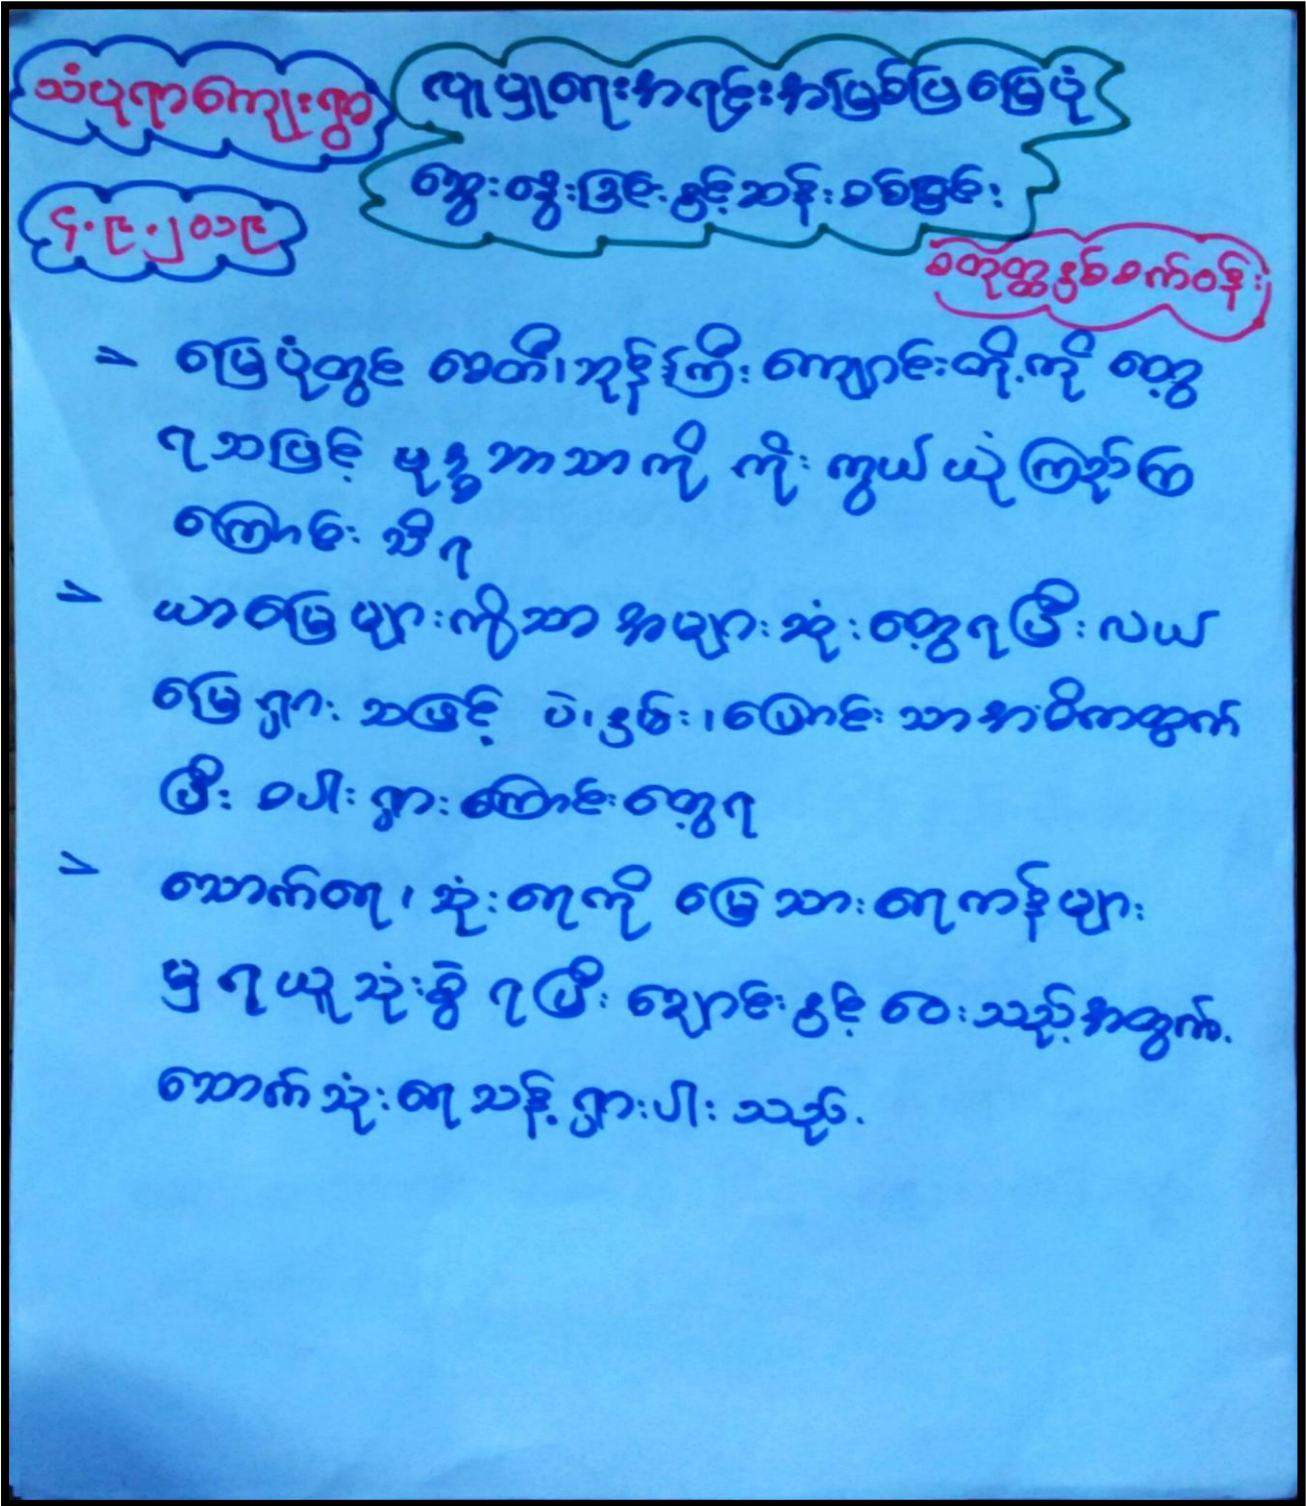 သံပုရာကျေးရွာ
လူမှုရေးအရင်းအမြစ်ပြမြေပုံ
ဆွေးနွေးခြင်းနှင့်ဆန်းစစ်ခြင်း
၄.၉.၂၀၁၉
စတုတ္ထနှစ်စက်ဝန်း
မြေပုံတွင် စေတီ၊ဘုန်းကြီးကျောင်းတို့ကို တွေ့
ရသဖြင့် ဗုဒ္ဓဘာသာကို ကိုးကွယ်ယုံကြည်ကြ
ကြောင်း သိရ
ယာမြေများကိုသာ အများဆုံးတွေ့ရပြီး လယ်
မြေရှား သဖြင့် ပဲ၊နှမ်း၊ပြောင်းသာအဓိကထွက်
ပြီး စပါးရှားကြောင်းတွေ့ရ
သောက်ရေ၊သုံးရေကို မြေသားရေကန်များ
မှ ရယူသုံးစွဲရပြီး ချောင်းနှင့် ဝေးသည့်အတွက်
သောက်သုံးရေသန့်ရှားပါးသည်.